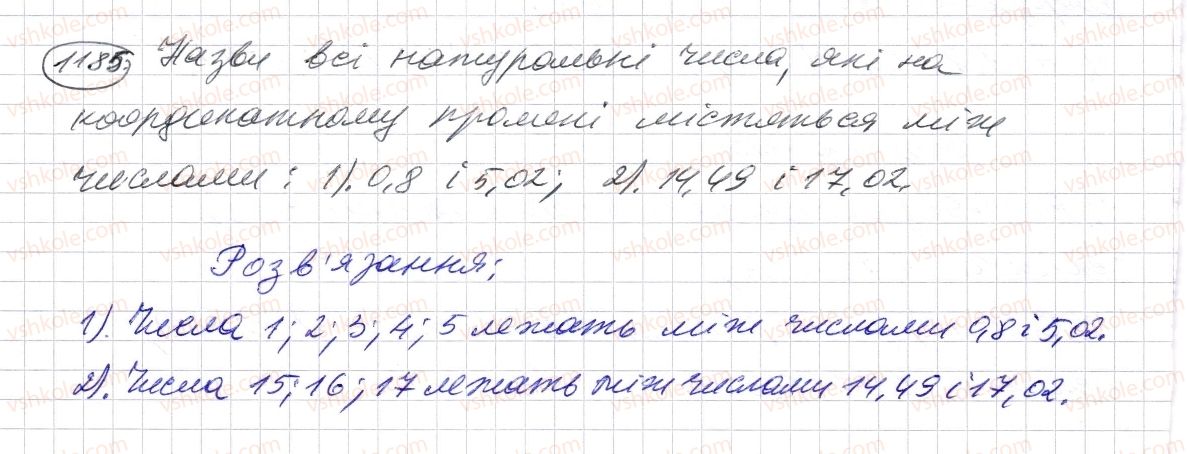 1185. Назви всі натуральні числа, які на
координатному промені містяться між
числами: 1). 0,8 і 5,02; 2). 14,49 і 17,02.
Розв'язання:
1). Числа 1; 2; 3; 4; 5 лежать між числами 0,8 і 5,02.
2). Числа 15; 16; 17 лежать між числами 14,49 і 17,02.